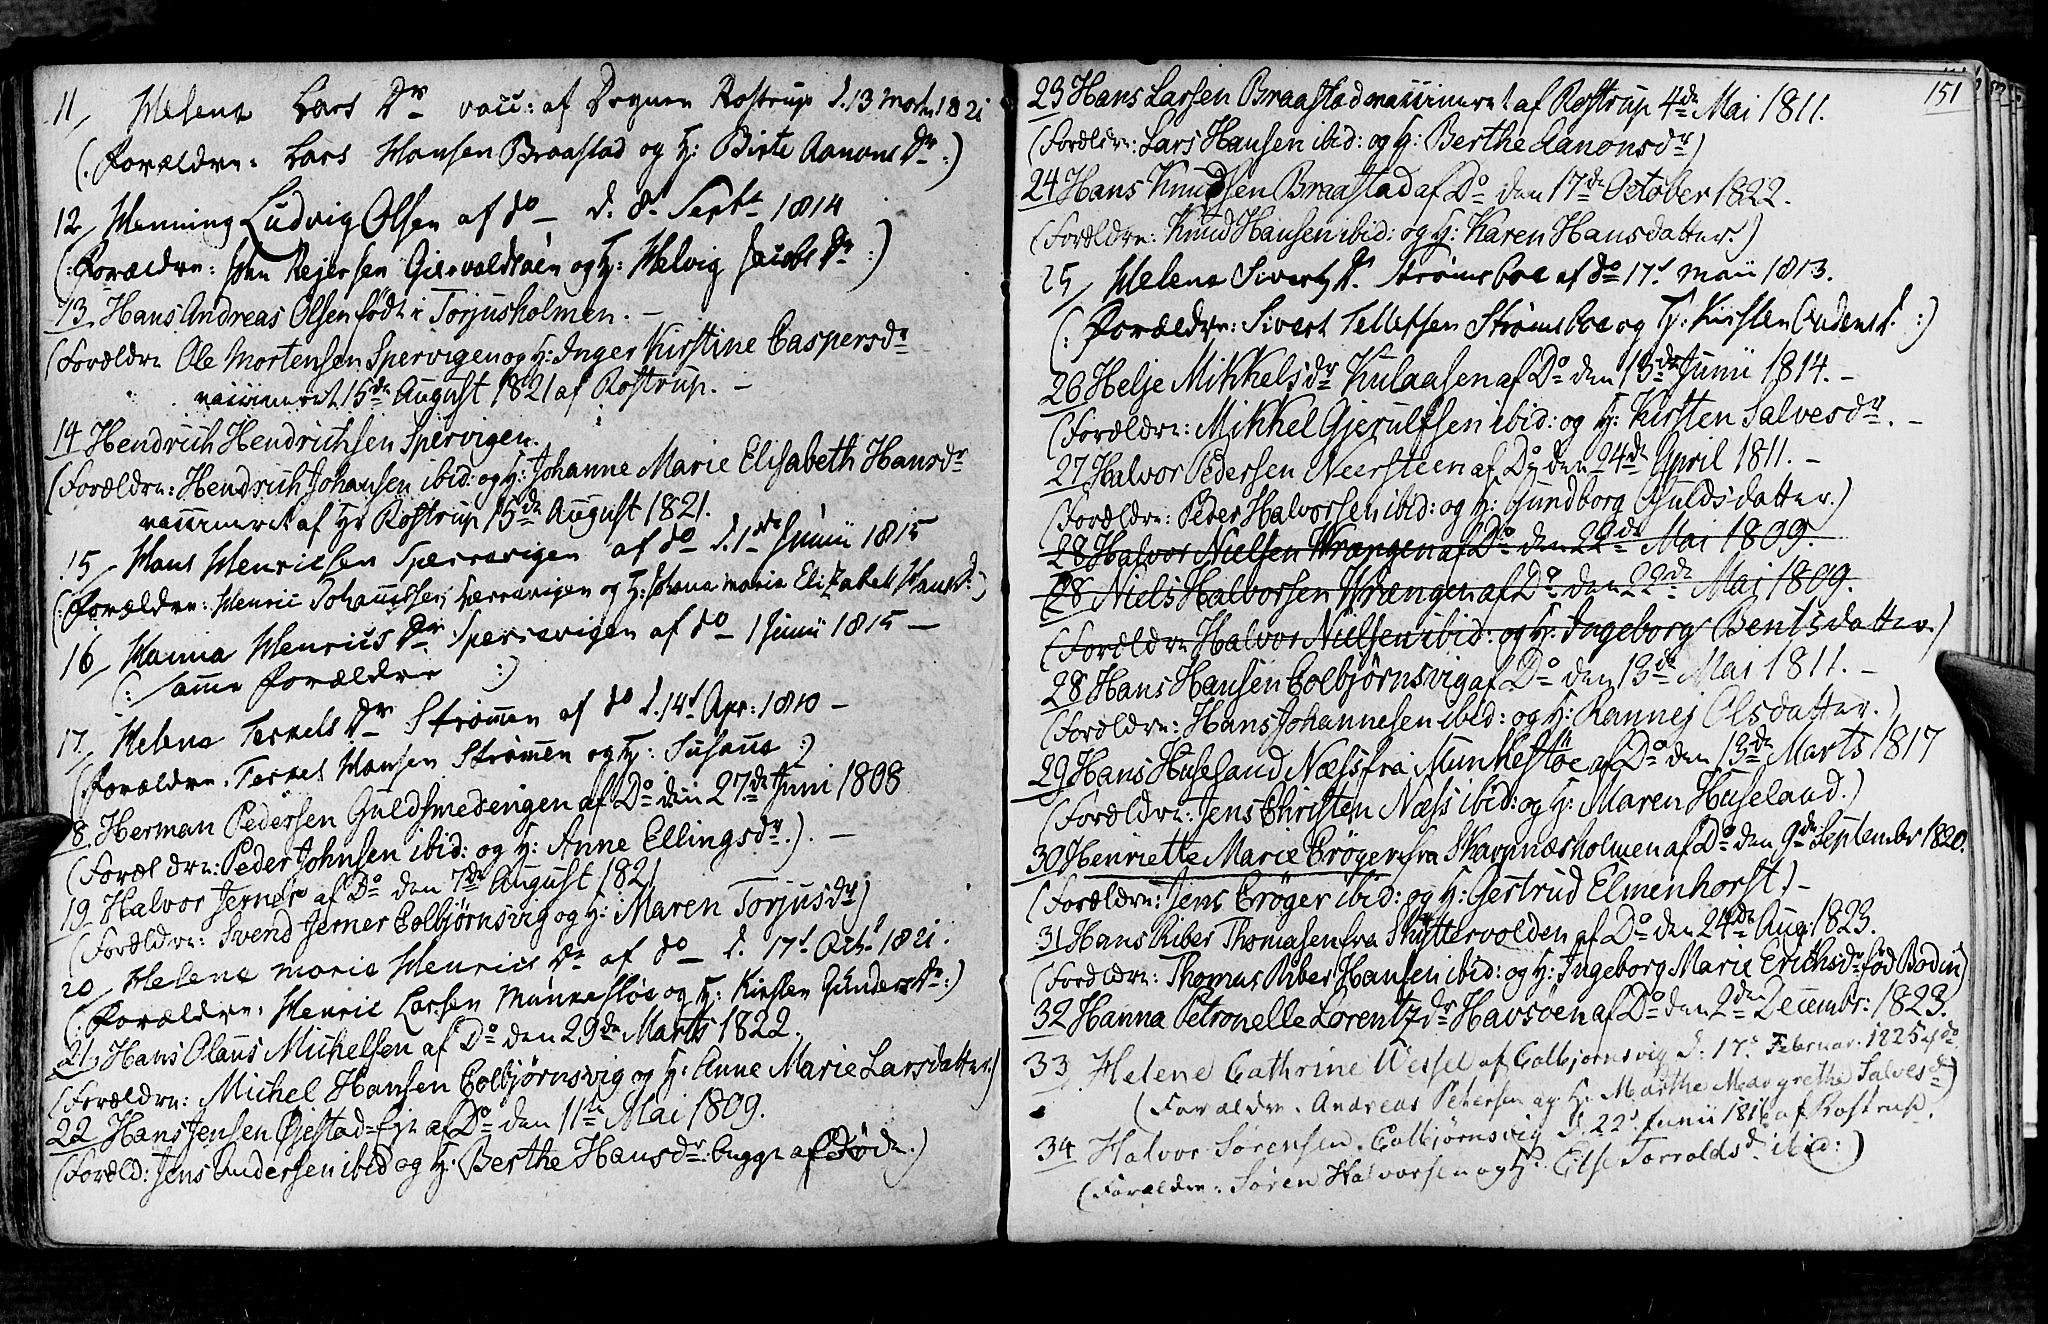 11/ Helena Lars Dr vacc: af Degnen Rostrup d. 13 1821
(: Forældre: Lars Hansen Braastad og H: Birte Aanons Dr :)
12/ Henning Ludvig Olsen af do d. 8 Septr 1814
(: Forældre: Reiersen og H: Helvig Jacobs Dr :)
13. Hans Andreas Olsen født i Torjusholmen. —
(Forældre Ole Mortensen Spervigen og H: Inger Kirstine Caspersdr
vaccineret 15de August 1821 af Rostrup. —
14 Hendrich Hendrichsen Spervigen.
(Forældre: Hendrich Johansen ibid: og H: Johanne Marie Elisabeth Hansdr
vaccineret af Hr Rostrup 15de August 1821.
15/ Hans Henricsen Sperrevigen af do d. 1de Junii 1815
(: Forældre: Henric Johannessen Sperrevigen og H: Johana Maria Elizabeth Hans D: )
16/ Hanna Henrics Dr Sperrevigen af do 1 Junii 1815 —
(: Samme Forældre :)
17/ Helena Terkels Dr Strømen af do d. 14d Apr: 1810 —
(: Forældre: Terkel Hansen Strømen og H: Susanna :)
18. Herman Pedersen Guldsmedengen af Do den 27de Juni 1808
(Forældre: Peder Johnsen ibid: og H: Anne Ellingsdr.) —
19 Halvor Jerner af Do den 7de August 1821
(Forældre: Svend Jerner Colbjørnsvig og H: Maren Torjusdr)
20/ Helena Maria Henrics Dr af do d. 17d Octr 1821.
(: Forældre: Henric Larsen Munkestøe og H: Kirsten Gunders Dr :)
21, Hans Olaus Michelsen af Do den 29de Marts 1822.
(Forældre: Michel Hansen Colbjørnsvig og H: Anne Marie Larsdatter.)
22 Hans Jensen Øiestad=Eje af Do den 11te Mai 1809.
(Foræld: Jens Andersen ibid og H: Berthe Hansdr: begge af Døde.)
151
23 Hans Larsen Braastad vaccineret af Rostrup 4de Mai 1811.
(Forældre: Lars Hansen ibid: og H: Berthe Aanonsdr)
24 Hans Knudsen Braastad af Do den 17de October 1822.
(Forældre: Knud Hansen ibid: og H: Karen Hansdatter.)
25/ Helena Siverts Dr. Strømsboe af do 17d Maii 1813.
(: Forældre: Sivert Tellefsen Strømsboe og H: Kirsten :)
26 Helje Mikkelsdr Kulaasen af Do den 13de Junii 1814. —
(Forældre: Mikkel Gjerulfsen ibid: og H: Kirsten Salvesdr. —
27 Halvor Pedersen Neersteen af Do den 24de April 1811. —
(Forældre: Peder Halvorsen ibid: og H: Gundborg Osuldsdatter.)
28 Halvor Nielsen Wrængen af Do den 22de Mai 1809.
28 Niels Halvorsen Wrængen af Do den 22de Mai 1809.
(Forældre Halvor Nielsen ibid: og H: Ingeborg Bentsdatter.)
28 Hans Hansen Colbjørnsvig af Do den 13de Mai 1811. —
(Forældre: Hans Johannesen ibid: og H: Rannej Olsdatter.)
29 Hans Huseland Næss fra Munkestøe af Do den 13de Marts 1817
(Forældre: Jens Christen Næss ibid: og H: Maren Huseland.)
30 Henriette Marie Crøger fra Skavnæsholmen af Do den 9de September 1820.
(Forældre: Jens Crøger ibid: og H: Gertrud Elmenhorst.) —
31 Hans Riber Thomasen fra Skyttervolden af Do den 24de Aug: 1823.
(Forældre: Thomas Riber Hansen ibid: og H: Ingeborg Marie Erichsdr fød Bodin)
32 Hanna Petronelle Lorentzdr Havsøen af Do den 2den Decembr: 1823.
33 Helene Cathrine Wessel af Colbjørnsvig d. 17d Februar. 1825 af do.
(Forældre. Andreas Petersen og H. Marthe Margrethe Salvesdr)
34 Halvor Sørensen. Colbjørnsvig d. 22d Junii 1816 af Rostrup.
(Forældre: Søren Halvorsen og H: Else Torvoldsd. ibid:)